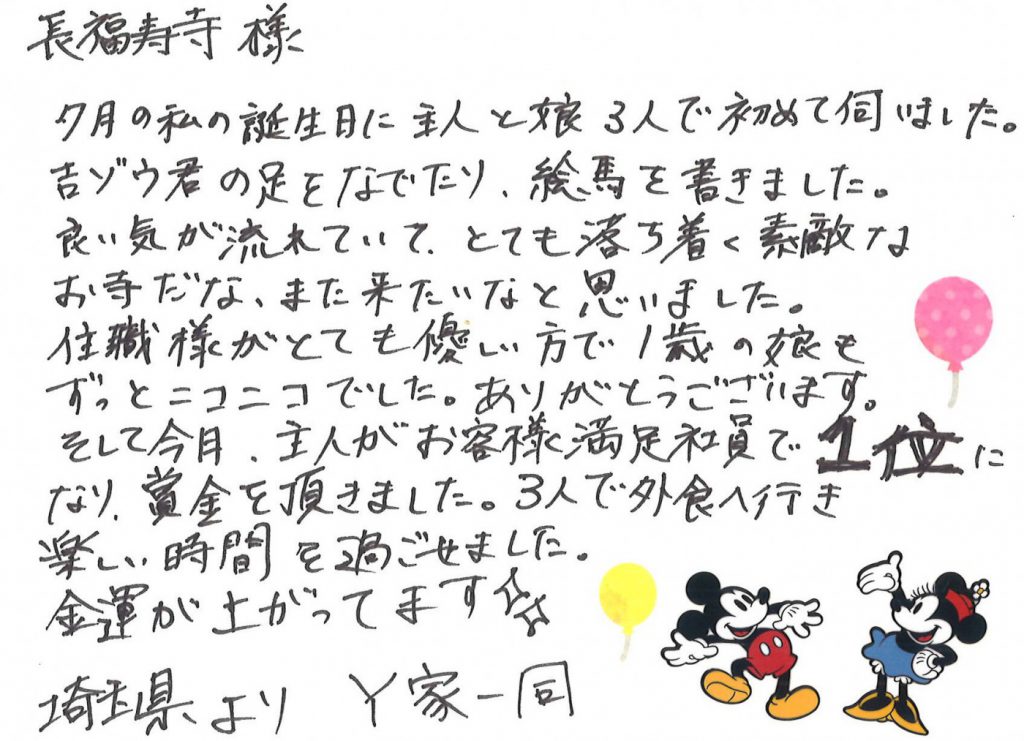 長福寿寺 様
7月の私の誕生日に主人と娘3人で初めて伺いました。
吉ゾウ君の足をなでたり、絵馬を書きました。
良い気が流れていて、とても落ち着く素敵な
お寺だな、また来たいなと思いました。
住職様がとても優しい方で1歳の娘も
ずっとニコニコでした。ありがとうございます。
そして今月、主人がお客様満足社員で1位に
なり、賞金を頂きました。3人で外食へ行き
楽しい時間を過ごせました。
金運が上がってます
埼玉県より Y家一同